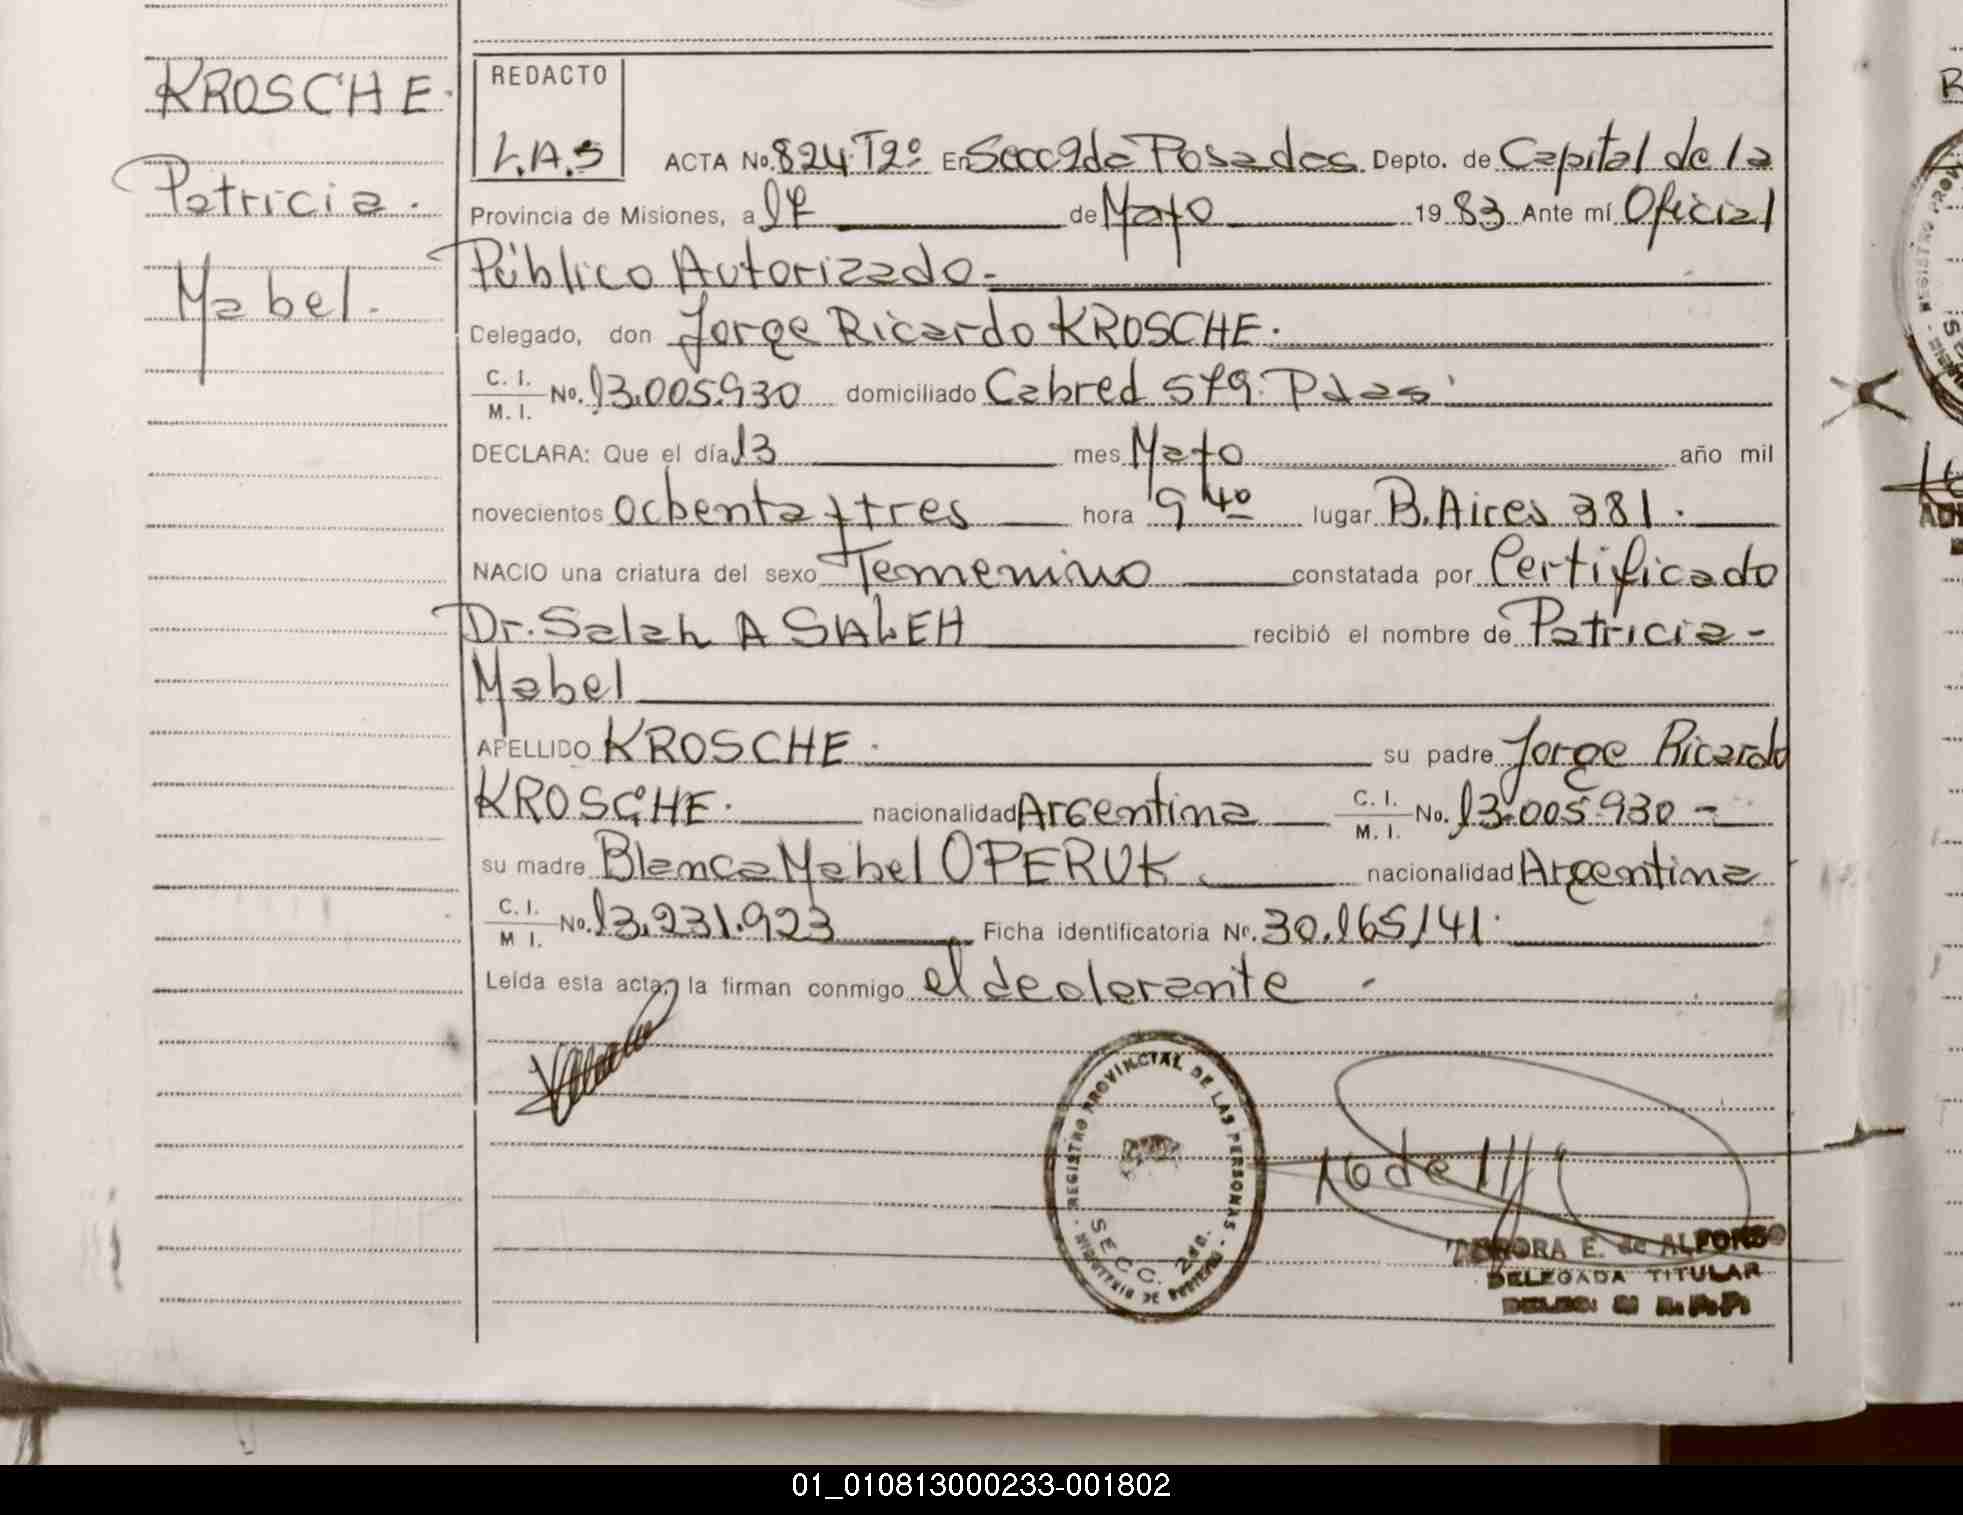 KROSCHE.
Patricia.
Mabel.
REDACTO
L.A.S
ACTA No. 824 Tº2º En Secc 2da Posadas Depto. de Capital de la
Provincia de Misiones, a 17 de Mayo 19 83 Ante mí Oficial
Público Autorizado.-
Delegado, don Jorge Ricardo KROSCHE.
C. I. / M. I. No. 13.005.930 domiciliado Cabred 579. Pdas.
DECLARA: Que el día 13 mes Mayo año mil
novecientos ochenta y tres hora 9 40 lugar B. Aires 381.
NACIO una criatura del sexo Femenino constatada por Certificado
Dr. Salah A SALEH recibió el nombre de Patricia -
Mabel
APELLIDO KROSCHE. su padre Jorge Ricardo
KROSCHE. nacionalidad Argentina C. I. / M. I. No. 13.005.930 -
su madre Blanca Mabel OPERUK. nacionalidad Argentina
C. I. / M I. No. 13.231.923 Ficha identificatoria Nº. 30.165/41.
Leída esta acta, la firman conmigo el declarante -
REGISTRO PROVINCIAL DE LAS PERSONAS
SECC. 2da.
E. de ALFONSO
DELEGADA TITULAR
01_010813000233-001802